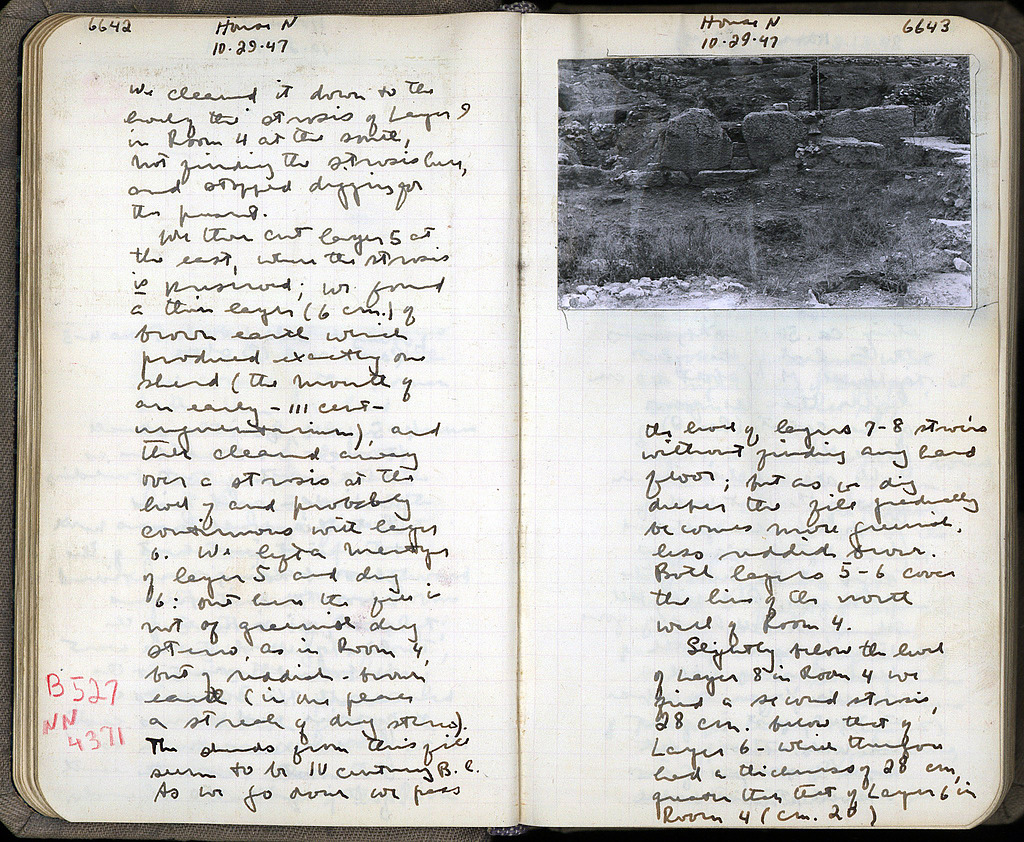 6642
House N
10-29-47
We cleaned it down to the
level of the strosis of Layer 8
in Room 4 at the south,
not finding the strosis here,
and stopped digging for
the present.
We then cut layer 5 at
the east, where the strosis
is preserved; we found
a thin layer (6 cm.) of
brown earth which
produced exactly one
sherd (the mouth of
an early - III cent -
unguentarium), and
then cleaned away
over a strosis at the
level of and probably
conterminous with layer
6. We left a
of layer 5 and dug
6: out here the fill is
not of greenish dug
stereo, as in Room 4,
but of reddish-brown
earth (in one place
a streak of dug stereo).
The sherds from this fill
seem to be IV century B.C.
As we go down we pass
B 527
NN
4371
House N
10-29-47
6643
the level of layers 7-8 strosis
without finding any hard
floor; but as we dig
deeper the fill gradually
becomes more greenish,
less reddish brown.
Both layers 5-6 cover
the line of the north
wall of Room 4.
Slightly below the level
of Layer 8 in Room 4 we
find a second strosis,
28 cm. below that of
Layer 6 - which therefore
had a thickness of 28 cm,
greater than that of Layer 6 in
Room 4 (cm. 20)